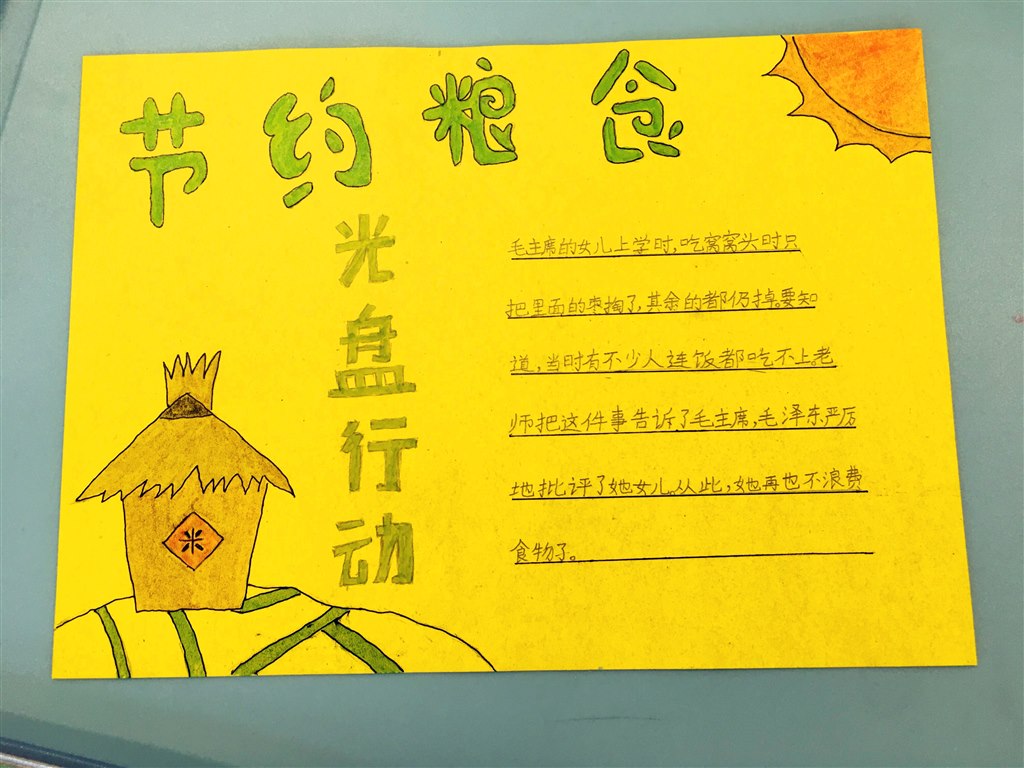 节约粮食
光盘行动
毛主席的女儿上学时,吃窝窝头时只
把里面的枣掏了,其余的都仍掉.要知
道,当时有不少人连饭都吃不上.老
师把这件事告诉了毛主席,毛泽东严厉
地批评了她女儿.从此,她再也不浪费
食物了。
米